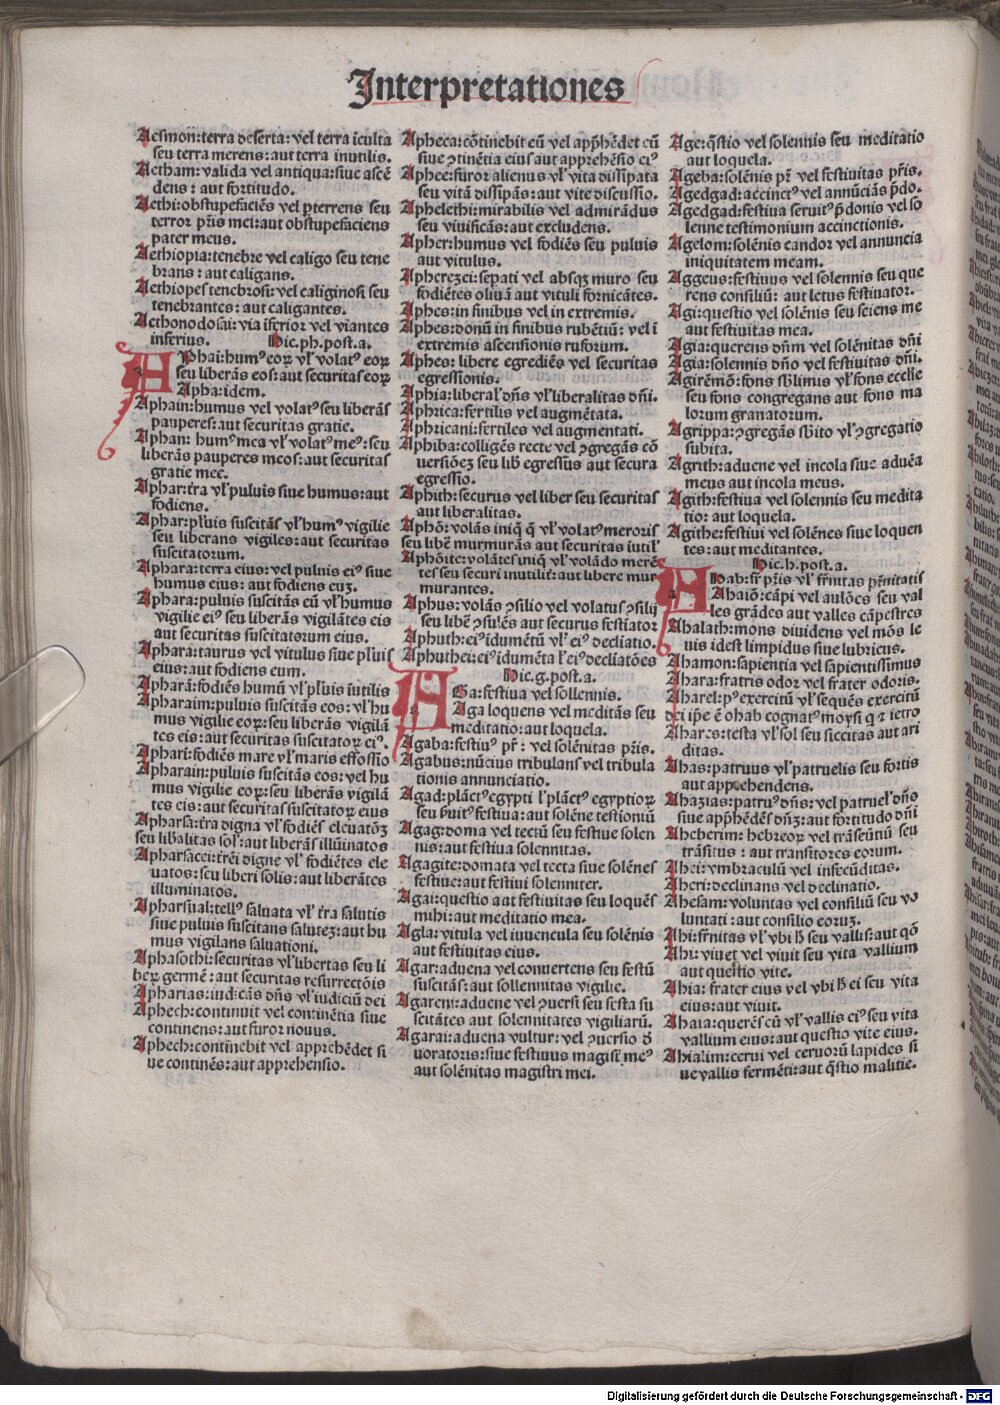 Interpretationes
Aesmon:terra deserta: vel terra ĩculta
seu terra merens: aut terra inutilis.
Aetham: valida vel antiqua:siue ascẽ
dens: aut fortitudo.
Aethi:obstupefaciẽs vel ꝑterrens seu
terror pr̃is mei:aut obstupefaciens
pater meus.
Aethiopia:tenebre vel caligo seu tene
brans: aut caligans.
Aethiopes tenebrosi: vel caliginosi seu
tenebrantes: aut caligantes.
Aethonodosai: via ĩferior vel viantes
inferius. Hic.ph.post.a.
APhai:humꝰ eoꝝ vl̃ volatꝰ eoꝝ
seu liberãs eos:aut securitas eoꝝ
Apha:idem.
Aphain:humus vel volatꝰ seu liberãs
pauperes: aut securitas gratie.
Aphan: humꝰ mea vl̃ volatꝰ meꝰ: seu
liberãs pauperes meos:aut securitas
gratie mee.
Aphar:tr̃a vl̃ puluis siue humus:aut
fodiens.
Aphar:pl̃uis suscitãs vl̃ humꝰ vigilie
seu liberans vigiles: aut securitas
suscitatorum.
Aphara:terra eius: vel puluis eiꝰ siue
humus eius: aut fodiens euʒ.
Aphara: puluis suscitãs eũ vl̃ humus
vigilie eiꝰ seu liberãs vigilãtes eis
aut securitas suscitatorum eius.
Aphara:taurus vel vitulus siue pl̃uis
eius:aut fodiens eum.
Apharã:fodiẽs humũ vl̃ pl̃uis ĩutilis
Apharaim:puluis suscitãs eos: vl̃ hu
mus vigilie eoꝝ: seu liberãs vigilã
tes eis: aut securitas suscitatoꝝ eiꝰ.
Aphari:fodiẽs mare vl̃ maris effossio
Apharain:puluis suscitãs eos: vel hu
mus vigilie eoꝝ: seu liberãs vigilã
tes eis: aut securitas suscitatoꝝ eius
Apharsa:tr̃a digna vl̃ fodiẽs eleuatõʒ
seu lib̃alitas sol̃:aut liberãs illũinatos
Apharsacei:tr̃ei digne vl̃ fodiẽtes ele
uatos: seu liberi solis: aut liberãtes
illuminatos.
Apharsual: tellꝰ saluata vl̃ tr̃a salutis
siue puluis suscitans saluteʒ: aut hu
mus vigilans saluationi.
Aphasothi:securitas vl̃ libertas seu li
beꝝ germẽ: aut securitas resurrectõis
Apharias:iudicãs dñs vl̃ iudiciũ dei
Aphech: continuit vel continẽtia siue
continens: aut furor nouus.
Aphech: continebit vel apprehẽdet si
ue continẽs:aut apprehensio.
Apheca:cõtinebit eũ vel app̃hẽdet eũ
siue ꝯtinẽtia eius aut apprehẽsio eiꝰ
Aphee:furor alienus vl̃ vita dissipata
seu vitã dissipãs: aut vite discussio.
Aphelethi:mirabilis vel admirãdus
seu viuificãs:aut excludens.
Apher:humus vel fodiẽs seu puluis
aut vitulus.
Apherezei:sepati vel absqʒ muro seu
fodiẽtes oliuã aut vituli fornicãtes.
Aphes:in finibus vel in extremis.
Aphes:donũ in finibus rubẽtiũ: vel ĩ
extremis ascensionis ruforum.
Aphes: libere egrediẽs vel securitas
egressionis.
Aphia:liberal̃ dñs vl̃ liberalitas dñi.
Aphrica:fertilis vel augmẽtata.
Aphricani:fertiles vel augmentati.
Aphiba:colligẽs recte vel ꝯgregãs cõ
uersiõeʒ seu lib̃ egressiuus aut secura
egressio.
Aphith:securus vel liber seu securitas
aut liberalitas.
Aphõ: volãs iniq̃ q̃ vl̃ volatꝰ meroris
seu libẽ murmurãs aut securitas ĩutil̃
Aphõite: volãtes iniq̃ vl̃ volãdo merẽ
tes seu securi inutilit̃:aut libere mur
murantes.
Aphus: volãs ꝯsilio vel volatus ꝯsilij
seu libẽ ꝯsulẽs aut securus festiatoꝛ
Aphuth:eiꝰ idumẽtũ vl̃ eiꝰ decliatio.
Aphuthei:eiꝰ idumẽta l̃ eiꝰ decliatões
Hic.g.post.a.
AGa:festiua vel sollennis.
Aga loquens vel meditãs seu
meditatio: aut loquela.
Agaba:festiuꝰ pr̃: vel solẽnitas pr̃is.
Agabus: nũcius tribulans vel tribula
tionis annunciatio.
Agad:plãctꝰ egypti l̃ plãctꝰ egyptioꝝ
seu ẽuitꝰ festiua: aut solẽne testioniũ
Agag:doma vel tectũ seu festiue solen
nis: aut festiua solennitas.
Agagite:domata vel tecta siue solẽnes
festiue: aut festiui solenniter.
Agai:questio aut festiuitas seu loquẽs
mihi: aut meditatio mea.
Agla: vitula vel iuuencula seu solẽnis
aut festiuitas eius.
Agar:aduena vel conuertens seu festũ
suscitãs: aut sollennitas vigilie.
Agareni:aduene vel ꝯuersũ seu festa su
scitãtes aut solennitates vigiliarũ.
Agarai:aduena vultur: vel ꝯuersio d̃
uoratoris:siue festiuus magist̃ meꝰ
aut solẽnitas magistri mei.
Age:q̃stio vel solennis seu meditatio
aut loquela.
Ageba:solẽnis pr̃ vel festiuitas pr̃is.
Agedgad:accinctꝰ vel annũciãs p̃do.
Agedgad:festiua seruitꝰ p̃donis vel so
lenne testimonium accinctionis.
Agelom:solẽnis candor vel annuncia
iniquitatem meam.
Aggeus:festiuus vel solennis seu que
rens consiliũ: aut letus festiuator.
Agi:questio vel solẽnis seu sciens me
aut festiuitas mea.
Agia:querens dñm vel solẽnitas dñi
Agia:solennis dño vel festiuitas dñi.
Agiremõ:fons sb̃limis vl̃ fons ecclie
seu fons congregans aut fons ma
lorum granatorum.
Agrippa:ꝯgregãs sb̃ito vl̃ ꝯgregatio
subita.
Agrith:aduene vel incola siue aduẽa
meus aut incola meus.
Agith:festiua vel solennis seu medita
tio: aut loquela.
Agithe:festiui vel solẽnes siue loquen
tes: aut meditantes.
Hic.h.post.a.
AHab:fr̃ pr̃is vl̃ fr̃nitas pr̃nitatis
Ahaiõ:cãpi vel aulões seu val
les grãdes aut valles cãpestres
Ahalath:mons diuidens vel mõs le
uis idest limpidus siue lubricus.
Ahamon:sapientia vel sapientissimus
Ahara:fratris odor vel frater odoris.
Aharel:pꝰ exercitũ vl̃ sequẽs exercitũ
dei ip̃e ẽ ohab cognatꝰ moysi q̃ ⁊ ietro
Ahares:testa vl̃ sol seu siccitas aut ari
ditas.
Ahas:patruus vl̃ patruelis seu fortis
aut apprehendens.
Ahazias:patruꝰ dñs: vel patruel̃ dño
siue app̃hẽdẽs dñʒ: aut fortitudo dñi
Aheherim: hebreoꝝ vel trãseũtiũ seu
trãsitus: aut transitores eorum.
Ahei:vmbraculũ vel infecũditas.
Aheri:declinans vel declinatio.
Ahesam:voluntas vel consiliũ seu vo
luntati:aut consilio eoruʒ.
Ahi:fr̃nitas vl̃ vbi h̃ seu vallis: aut qõ
Ahi: viuet vel viuit seu vita vallium
aut questio vite.
Ahia: frater eius vel vbi h̃ ei seu vita
eius:aut viuit.
Ahaia:querẽs eũ vl̃ vallis eiꝰ seu vita
vallium eius:aut questio vite eius.
Ahialim:cerui vel ceruorũ lapides si
ue vallis fermẽti:aut q̃stio malitie.
Digitalisierung gefördert durch die Deutsche Forschungsgemeinschaft - DFG